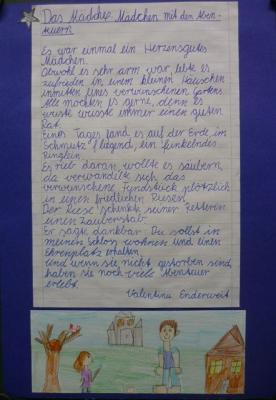 Das Mädchen mit den Aben-
teuern
Es war einmal ein Herzensgutes
Mädchen.
Obwohl es sehr arm war, lebte es
zufrieden in einem kleinen Häuschen
inmitten eines verwunschenen Gartens.
Alle mochten es gerne, denn es
wuste immer einen guten
Rat.
Eines Tages fand es auf der Erde im
Schmutz liegend, ein funkelndes
Ringlein.
Es rieb daran, wollte es säubern,
da verwandelte sich das
verwunschene Fundstück plötzlich
in einen friedlichen Riesen.
Der Riese schenkte seiner Retterin
einen Zauberstab.
Er sagte dankbar: Du sollst in
meinem Schloss wohnen und einen
Ehrenplatz erhalten.
Und wenn sie nicht gestorben sind,
haben sie noch viele Abenteuer
erlebt.
Valentina Enderweit